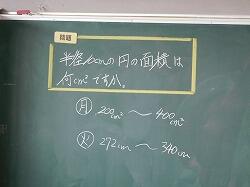 問題
半径10cmの円の面積は
何cm²ですか。
月 200cm² 〜 400cm²
火 272cm 〜 340cm